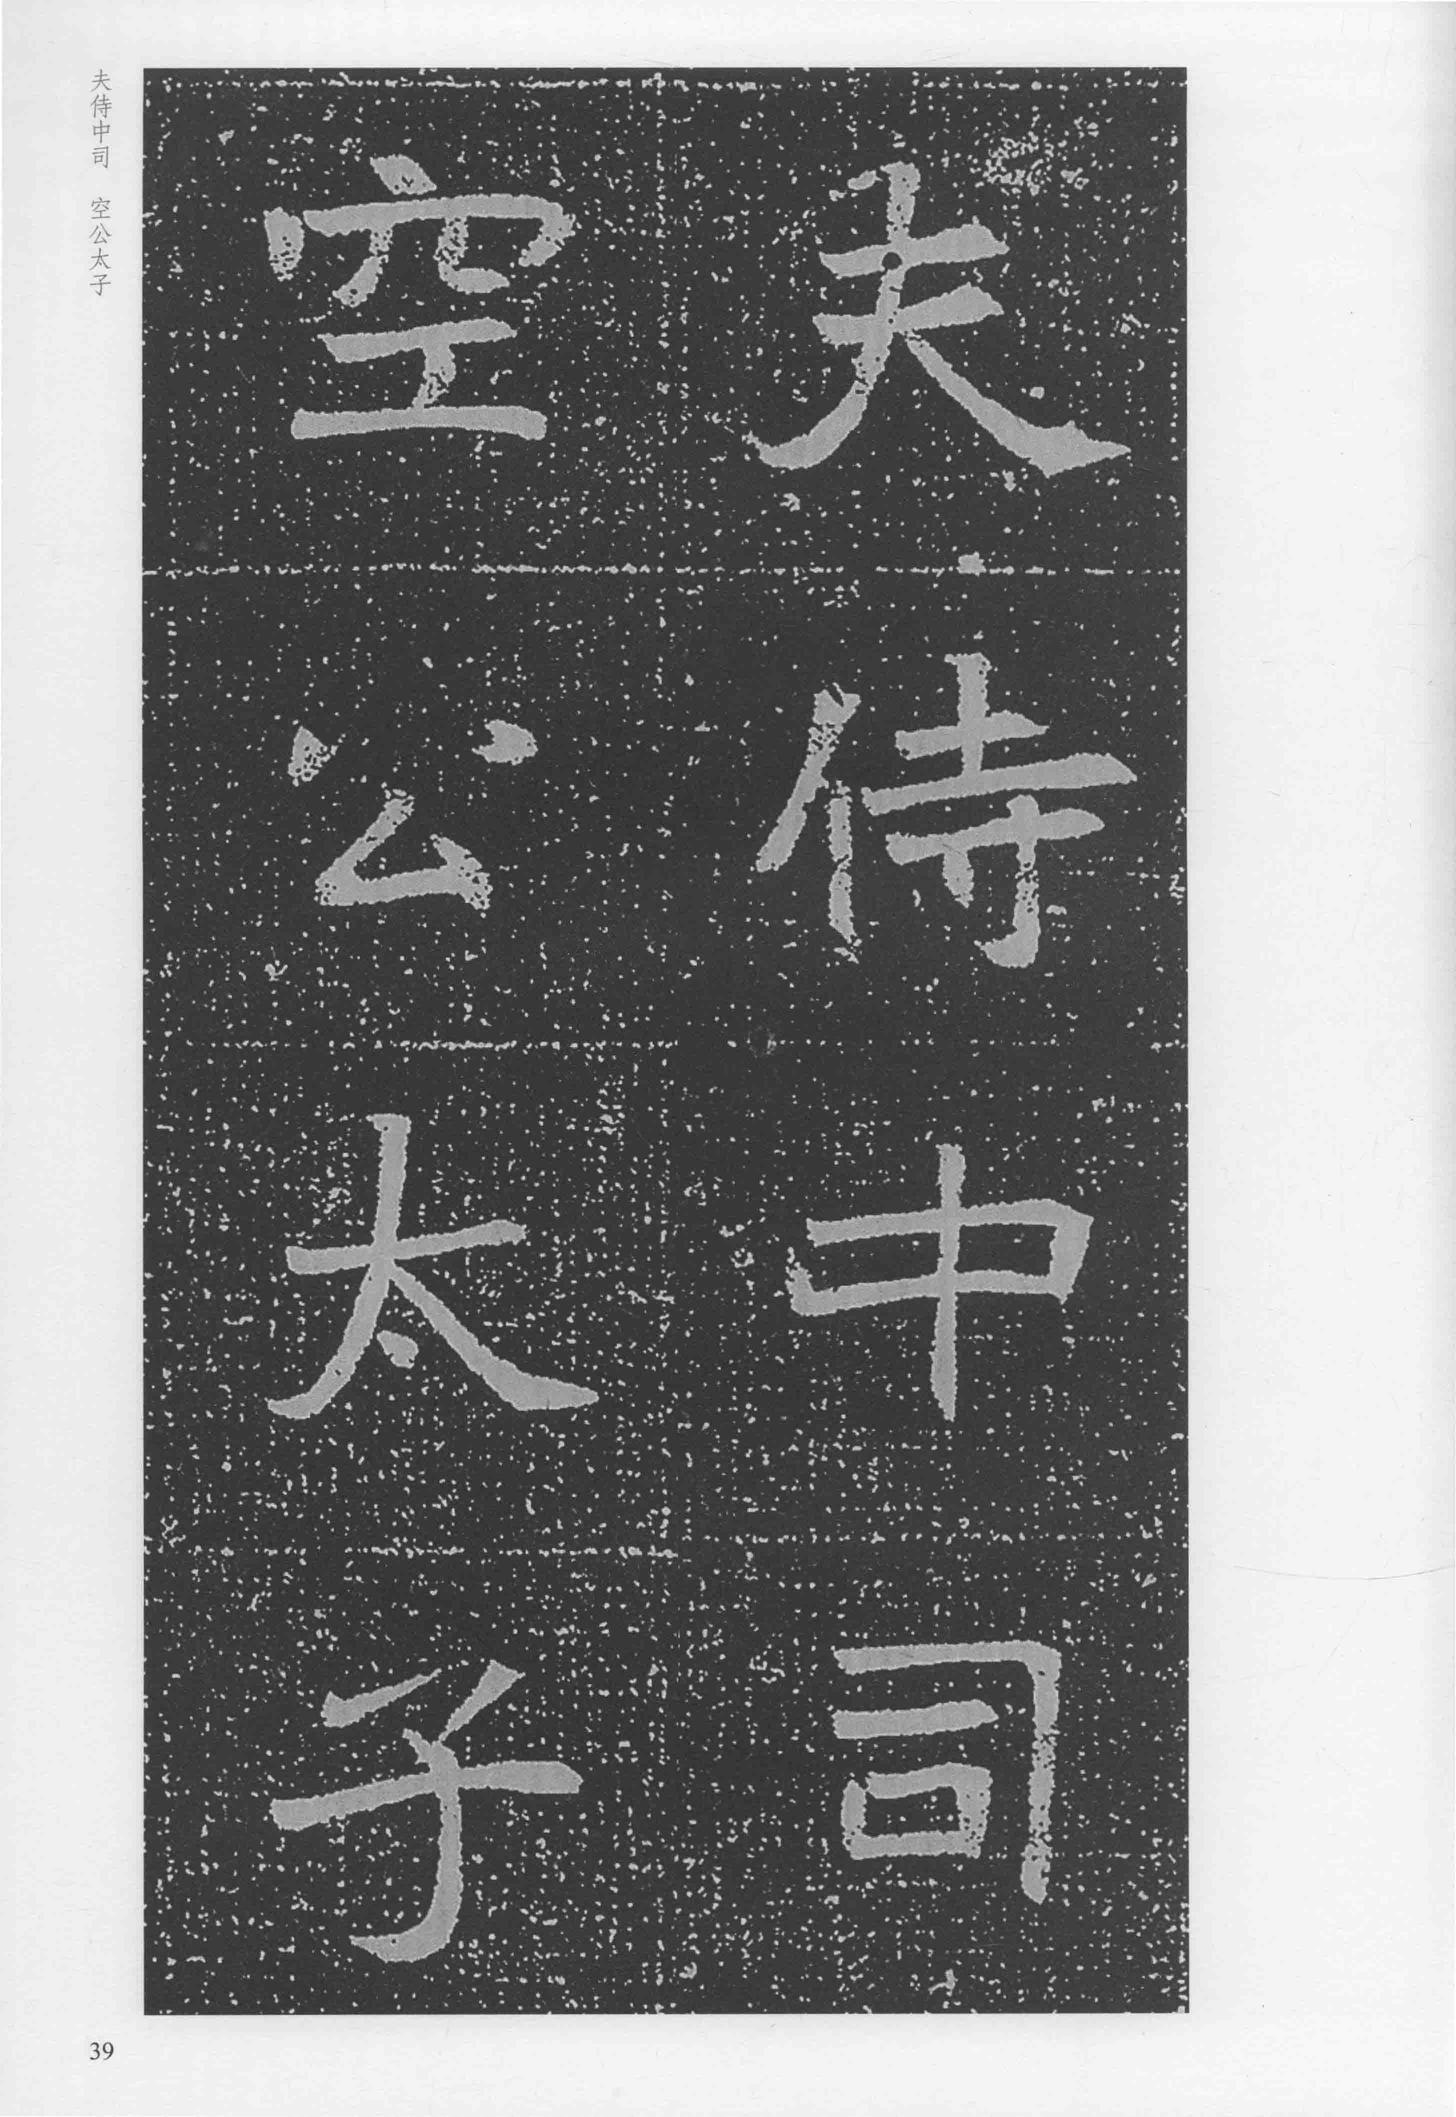 夫侍中司
空公太子
夫侍中司　空公太子
39